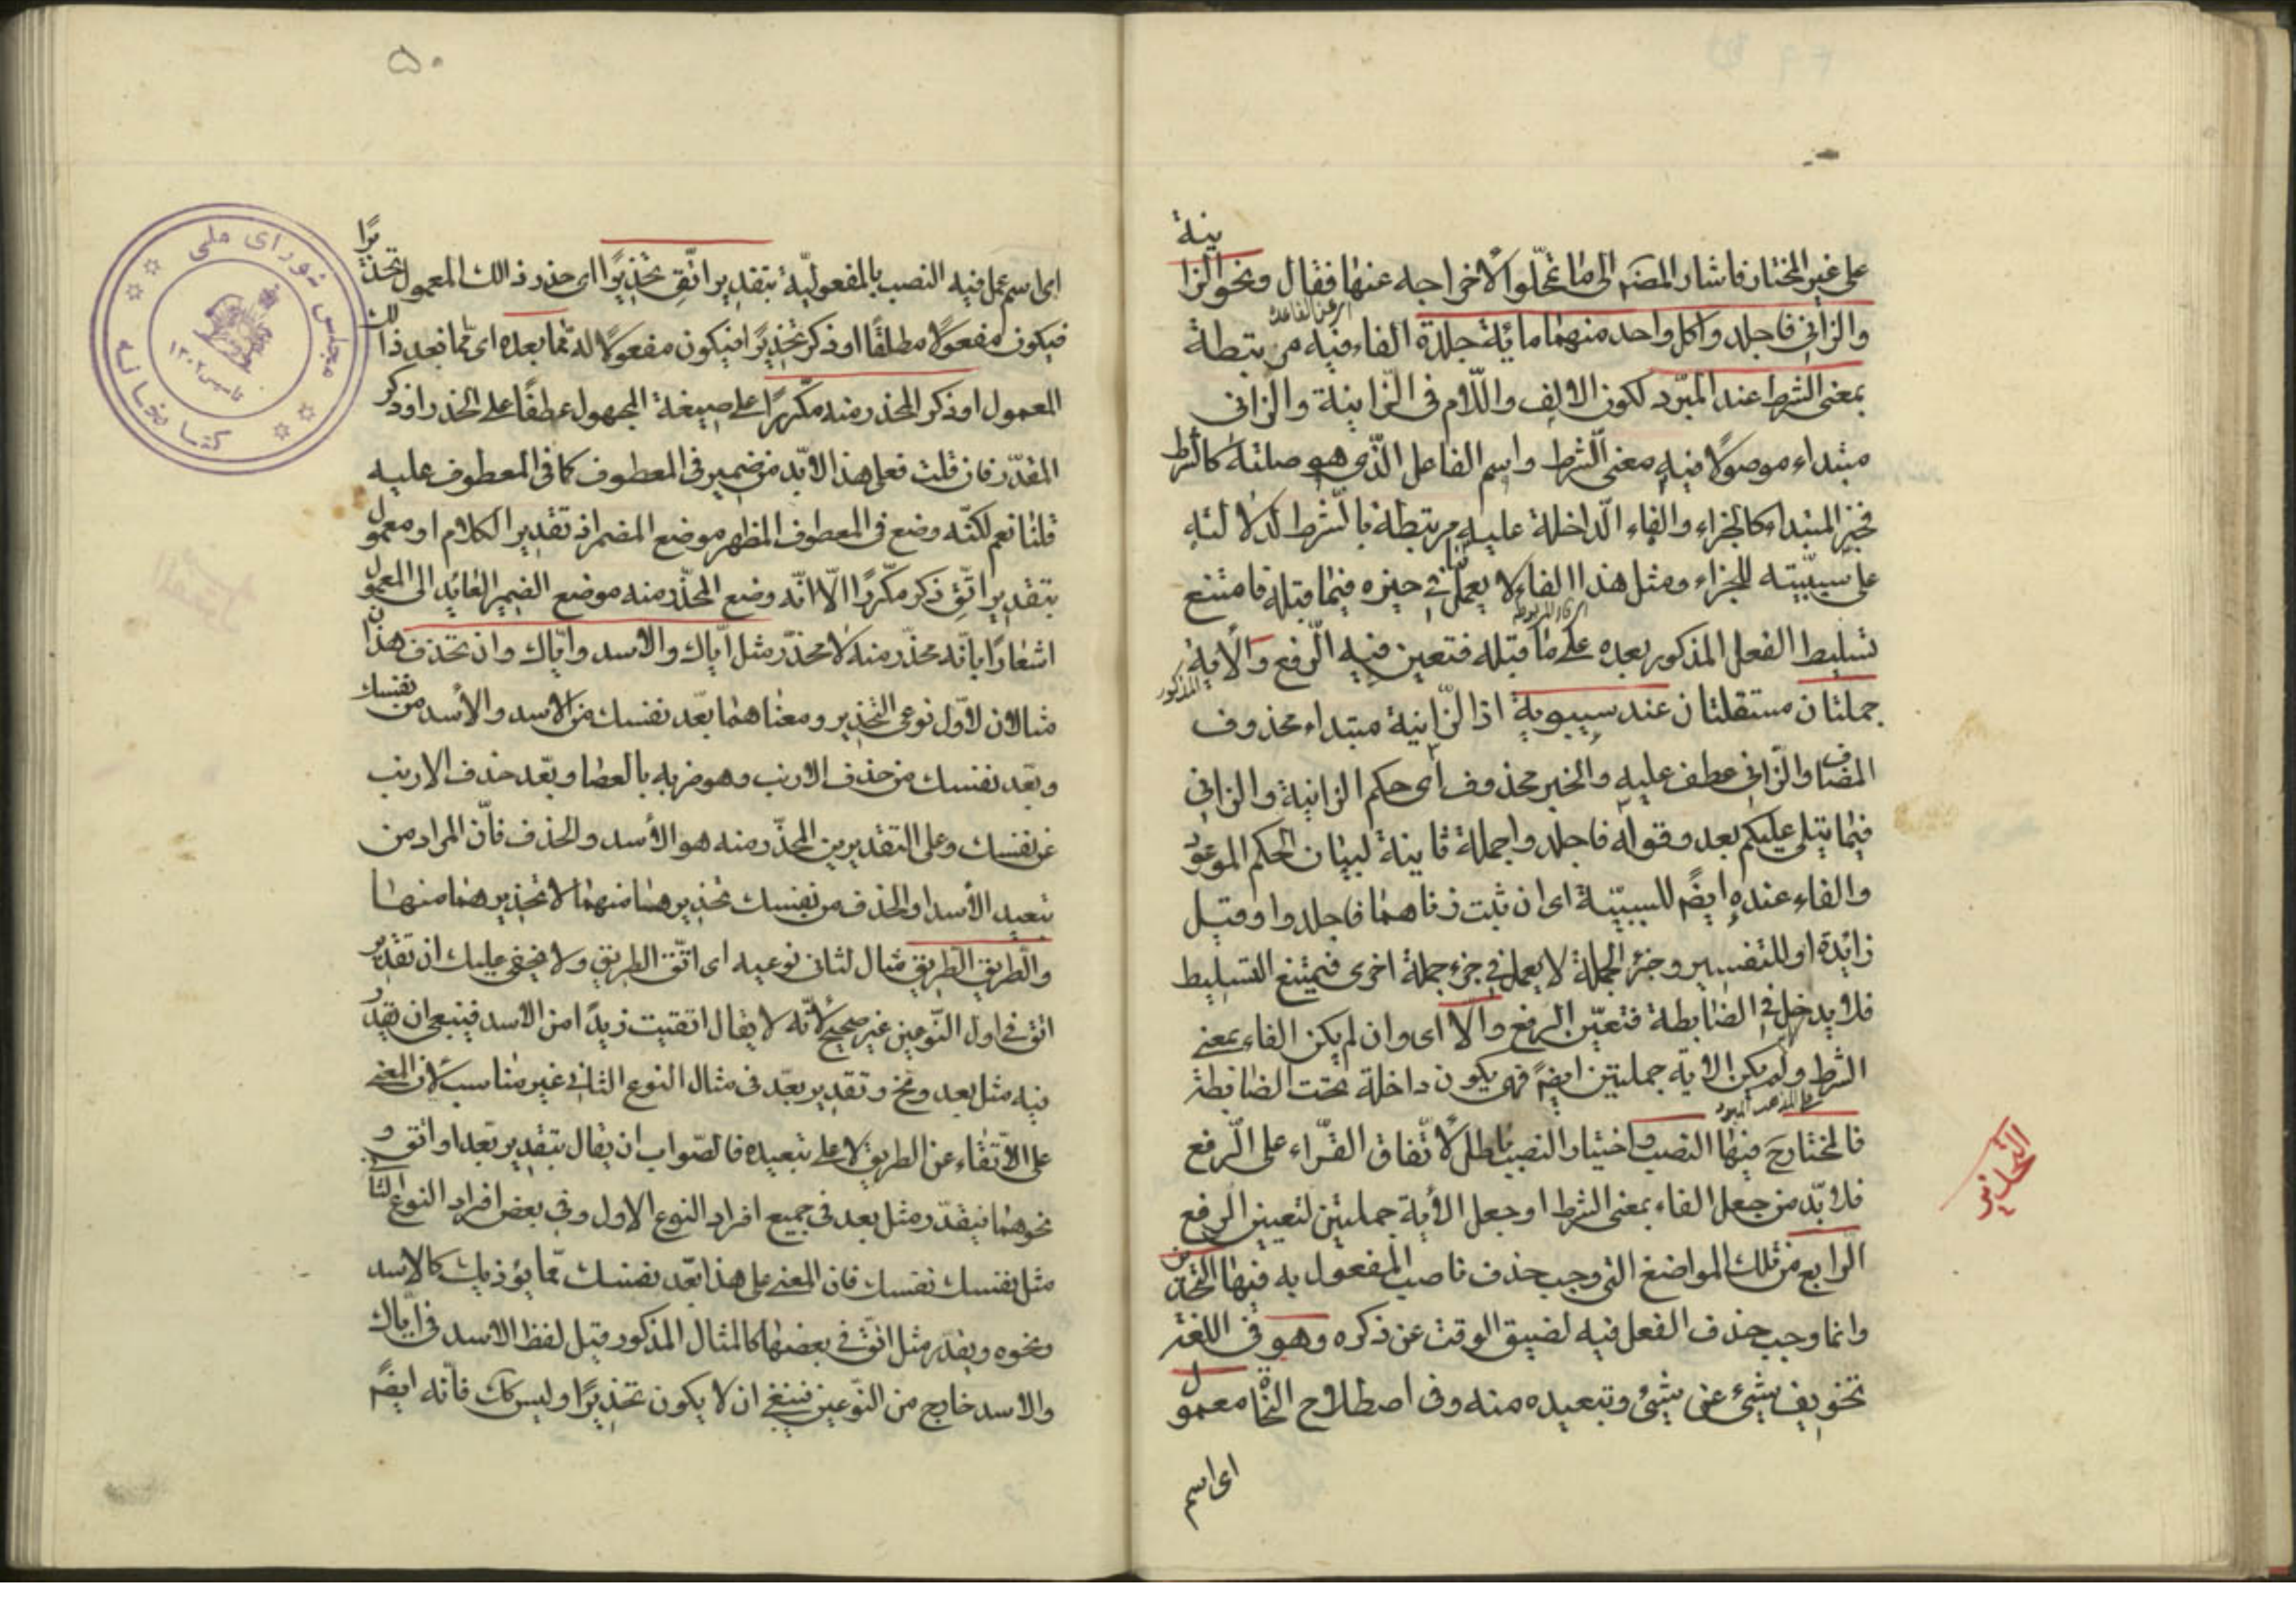 على غير المختار فاشار المصنف الى ما تمحّلوا لاخراجه عنها فقال ونحو الزانية
والزاني فاجلدوا كل واحد منهما مائة جلدة الفاء فيه مرتبطة
بمعنى الشرط عند المبرّد لكون الالف واللّام فى الزّانية والزّانى
مبتداء موصولًا فيه معنى الشرط واسم الفاعل الّذى هو صلته كالشرط
فخبر المبتداء كالجزاء والفاء الّداخلة عليه مرتبطة بالشرط لدلالته
على سببيّته للجزاء ومثل هذا الفاء لا يعمل ما فى حيزه فيما قبله فامتنع
تسليط الفعل المذكور بعده على ما قبله فتعين فيه الرّفع والاية المذكور
جملتان مستقلتان عند سيبويه اذ الزّانية مبتداء محذوف
المضاف والزّانى عطف عليه والخبر محذوف اى حكم الزانية والزانى
فيما يتلى عليكم بعد وقوله فاجلدوا جملة ثانية لبيان الحكم الموعود
والفاء عنده ايضً للسببيّة اى ان ثبت زناهما فاجلدوا وقيل
زائدة او للتفسير وجزء الجملة لا يعمل فى جزء جملة اخرى فيمتنع التسليط
فلا يدخل فى الضابطة فتعيّن الرفع والّا اى وان لم يكن الفاء بمعنى
الشرط ولم يكن الاية جملتين ايضً فهى يكون داخلة تحت الضابطة
فالمختار ح فيها النصب واختيار النصب باطل لاتّفاق القّراء على الرّفع
فلا بدّ من جعل الفاء بمعنى الشرط او جعل الاية جملتين لتعين الرفع
الرّابع من تلك المواضع التى وجب حذف ناصب المفعول به فيها التحذير
وانما وجب حذف الفعل فيه لضيق الوقت عن ذكره وهو فى اللغة
تخويف شىء عن شىء وتبعيده منه وفى اصطلاح النحاة معمول
اى اسم
التحذير
۵۰
اى اسم عمل فيه النصب بالمفعوليّة بتقدير اتّق تحذيرًا اى حذر ذالك المعمول تحذيرًا
فيكون مفعولًا مطلقًا او ذكر تحذيرًا فيكون مفعولًا له ممّا بعده اى ممّا بعد ذالك
المعمول او ذكر المحذر منه مكّررًا على صيغة المجهول عطفًا على الحذر او ذكر
المقدّر فان قلت فعلى هذا لا بّد من ضمير فى المعطوف كما فى المعطوف عليه
قلنا نعم لكنّه وضع فى المعطوف المظهر موضع المضمر اذ تقدير الكلام او معمول
بتقدير اتّق ذكر مكّررًا الّا انّه وضع المحذّر منه موضع الضمير العايد الى المعمول
اشعارًا بانّه محذّر منه لا محذّر مثل ايّاك والاسد وايّاك وان تحذف هذان
مثالان لاوّل نوعى التحذير ومعناهما بعّد نفسك من الاسد والأسد من نفسك
وبعّد نفسك من حذف الارنب وهو ضربه بالعصا وبعّد حذف الارنب
عن نفسك وعلى التقديرين المحذّر منه هو الأسد والحذف فانّ المراد من
تبعيد الأسد او الحذف من نفسك تحذيرهما منهما لا تحذيرهما منها
والّطريق الّطريق مثال لثانى نوعيه اى اتّق الطريق ولا يخفى عليك ان تقدير
اتق فى اول النّوعين غير صحيح لأنّه لا يقال اتقيت زيدًا من الاسد فينبغى ان يقدر
فيه مثل بعد ونح وتقدير بعّد فى مثال النوع الثانى غير مناسب لان المعنى
على الاتّقاء عن الطريق لا على تبعيده فالصّواب ان يقال بتقدير بّعد او اتق و
نحوهما فيقدّر مثل بعد فى جميع افراد النوع الاول وفى بعض افراد النوع الثانى
مثل نفسك نفسك فان المعنى على هذا بعّد نفسك ممّا يؤذيك كالاسد
ونحوه ويقدّر مثل اتّق فى بعضها كالمثال المذكور قيل لفظ الاسد فى ايّاك
والاسد خارج من النّوعين فينبغى ان لا يكون تحذيرًا وليس كك فانّه ايضً
كتابخانه مجلس شورای ملی
تاسیس ۱۳۰۲